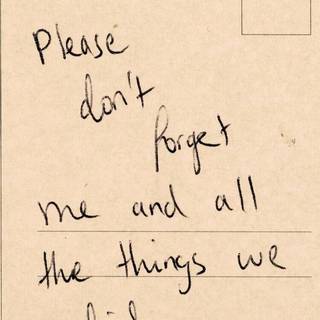 Please
don't
forget
me and all
the things we